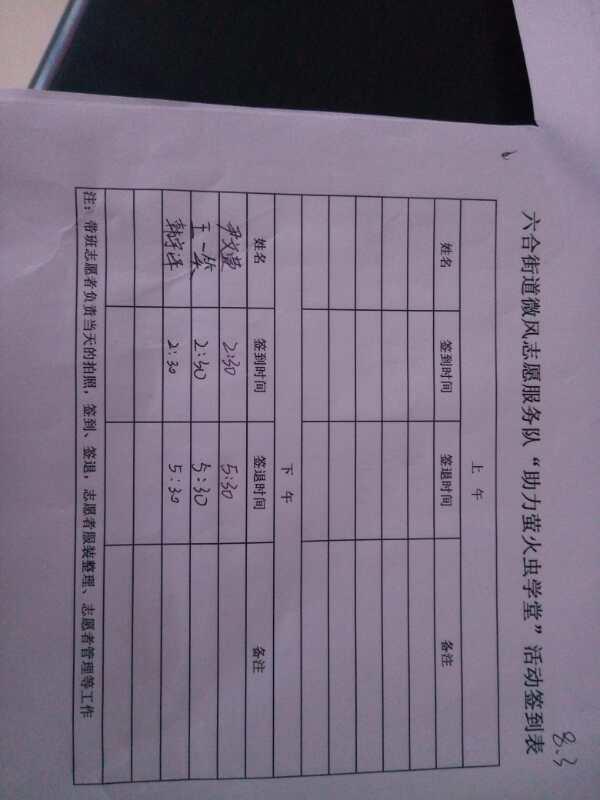 8.3
六合街道微风志愿服务队“助力萤火虫学堂”活动签到表
上 午
姓名 签到时间 签退时间 备注
下 午
姓名 签到时间 签退时间 备注
尹文萱 2:30 5:30
王一笑 2:30 5:30
韩宇洋 2:30 5:30
注：带班志愿者负责当天的拍照，签到、签退，志愿者服装整理、志愿者管理等工作